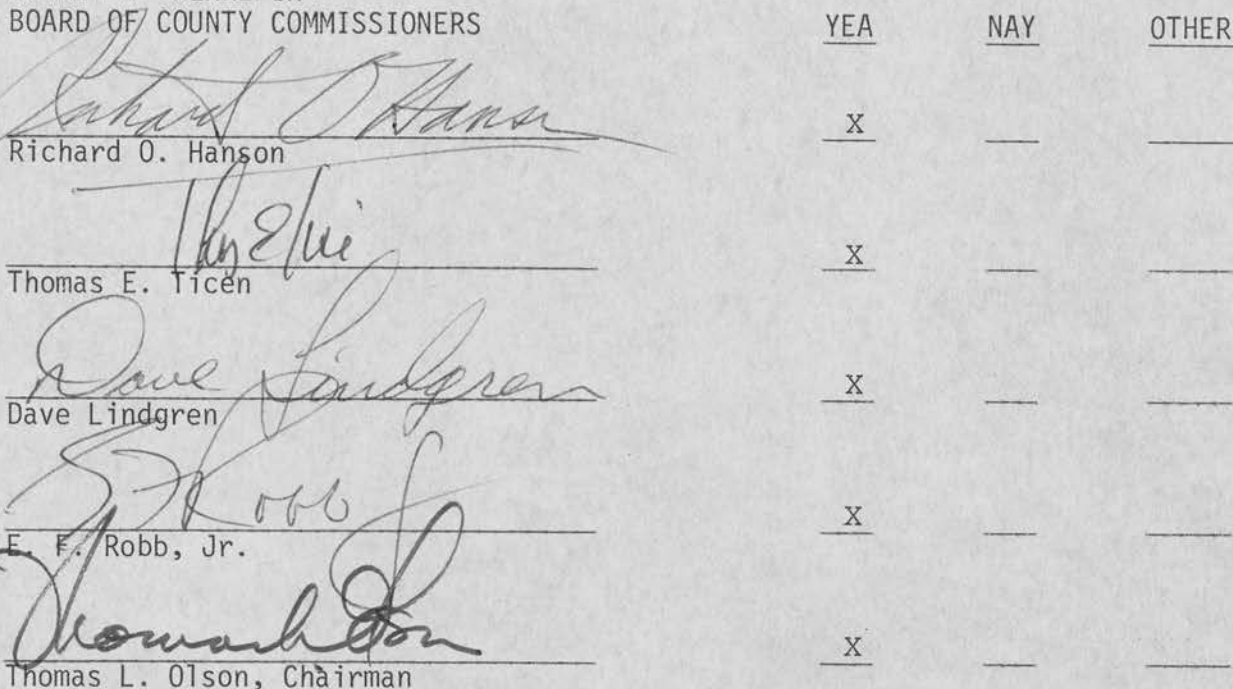 BOARD OF COUNTY COMMISSIONERS YEA NAY OTHER
Richard O Hanson
X
Richard O. Hanson
X
Thomas E. Ticen
Dave Lindgren
X
Dave Lindgren
E F Robb Jr
X
E. F. Robb, Jr.
Thomas L Olson
X
Thomas L. Olson, Chairman